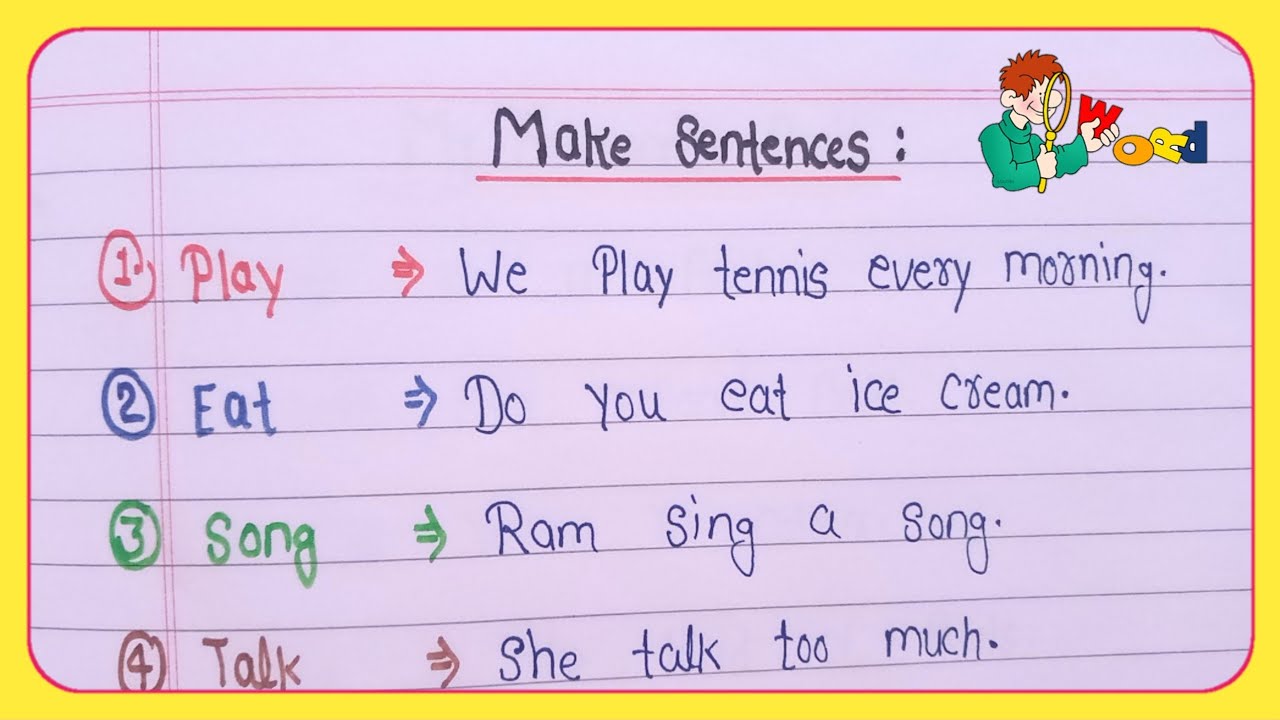 Make Sentences :
WORD
1. Play ⇒ We Play tennis every morning.
2 Eat ⇒ Do you eat ice cream.
3 Song ⇒ Ram sing a song.
4 Talk ⇒ She talk too much.